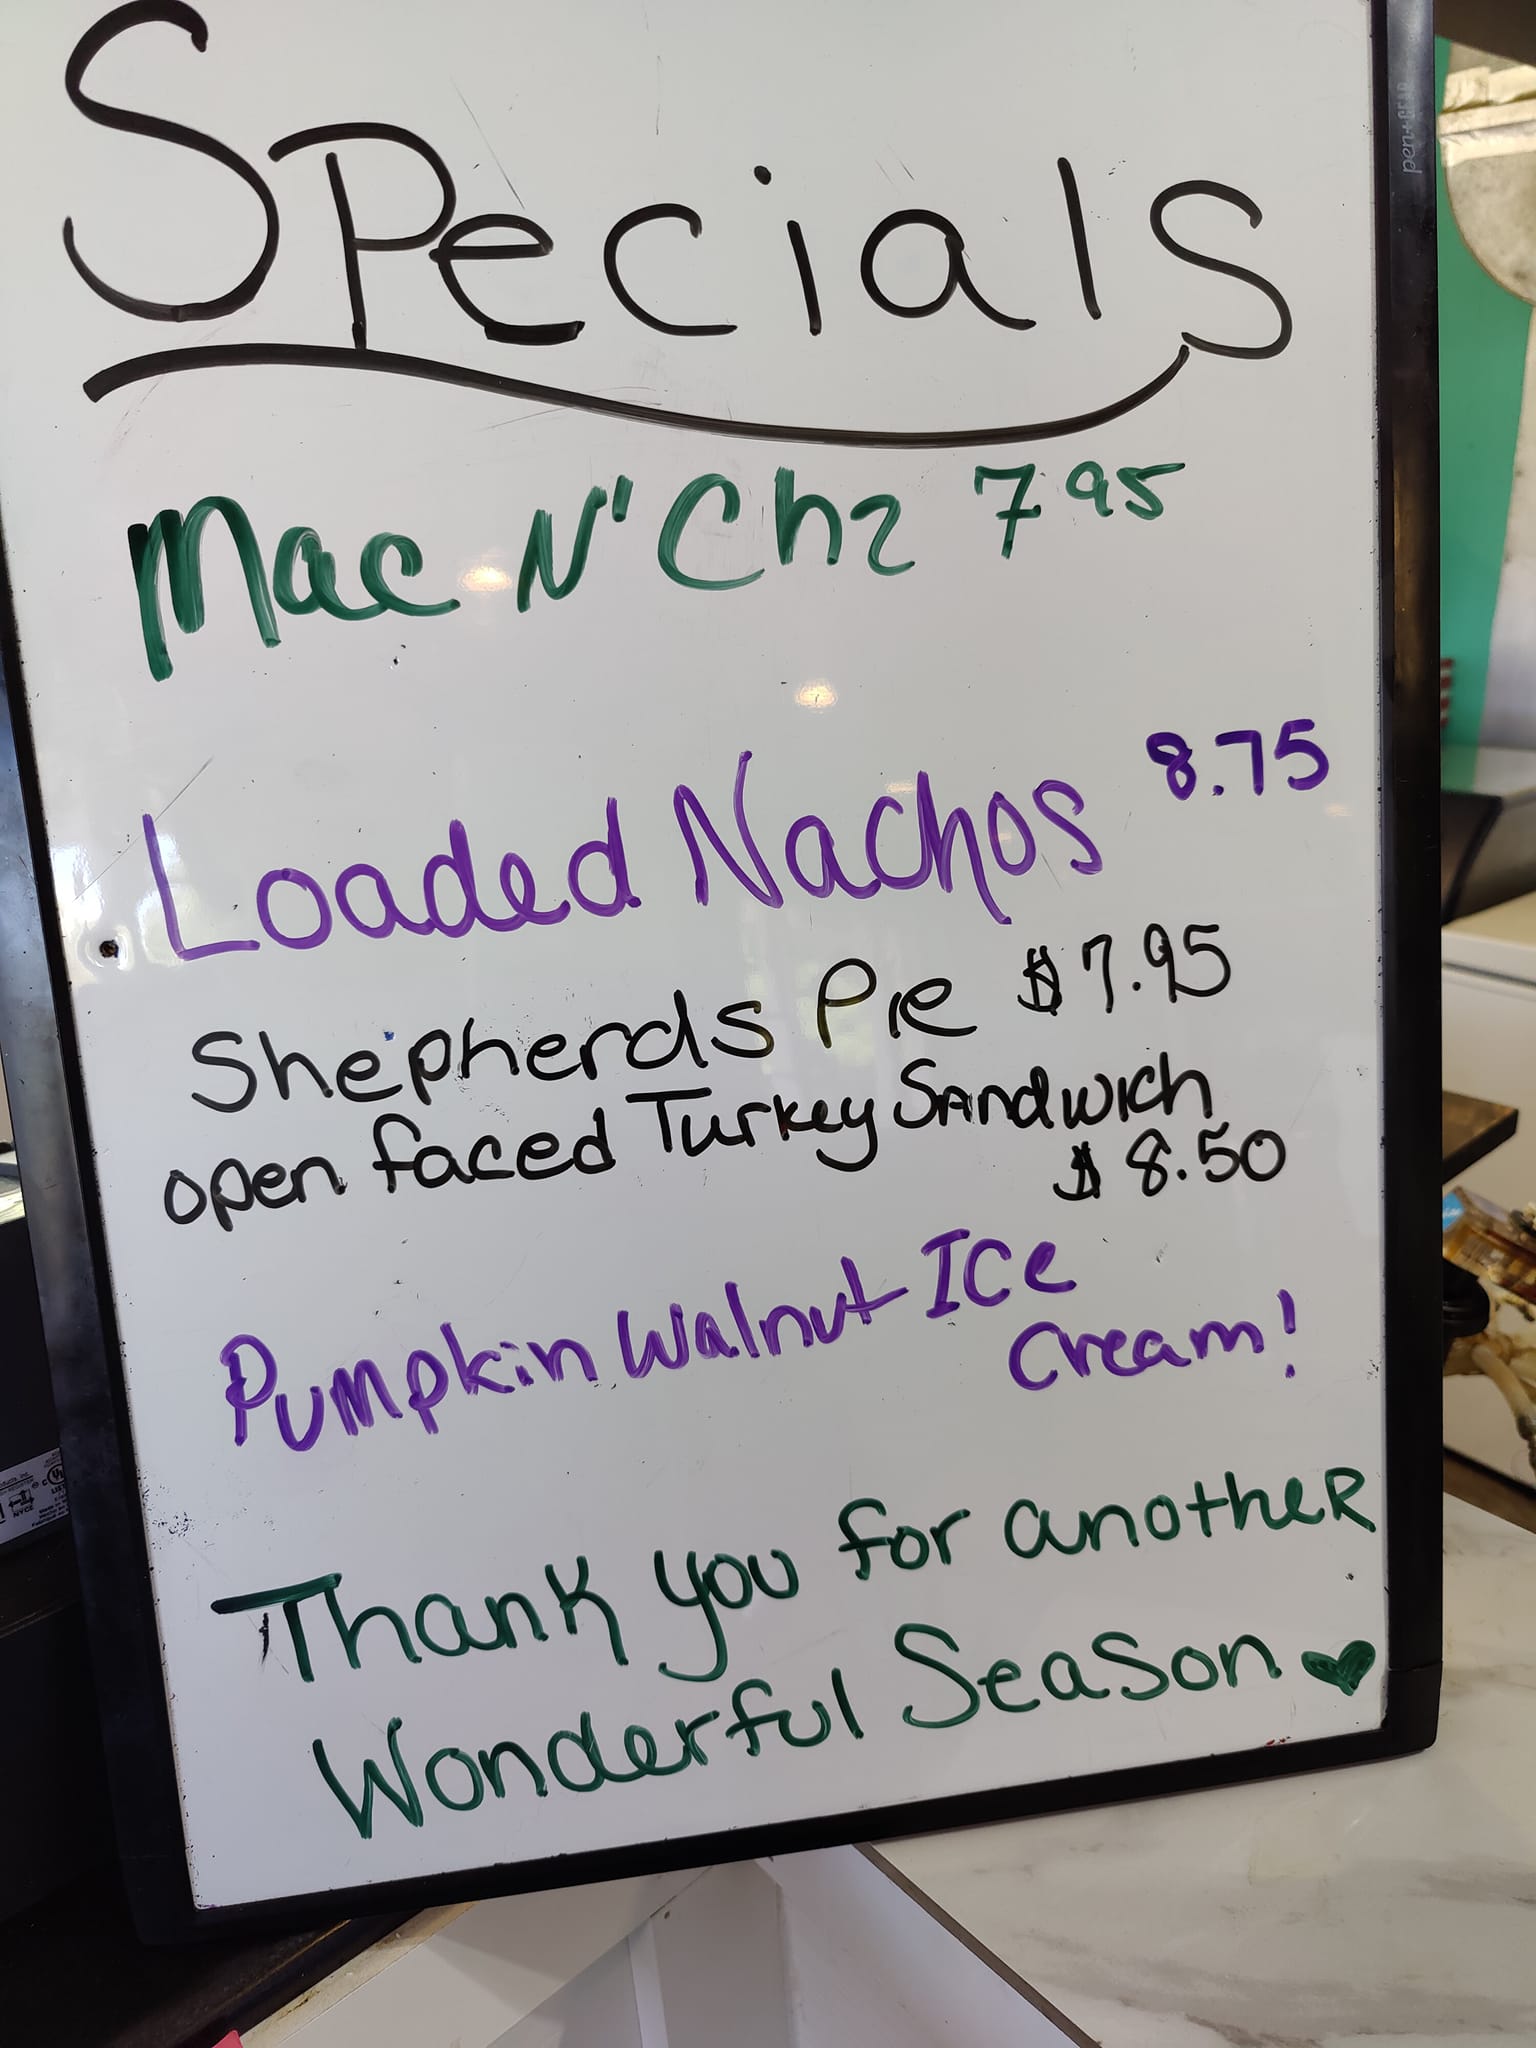 Specials
Mac N' Chz 7 95
Loaded Nachos 8.75
Shepherds Pie $7.95
open faced Turkey Sandwich
$8.50
Pumpkin Walnut Ice
Cream!
Thank you for another
Wonderful Season ♥
pen+gear